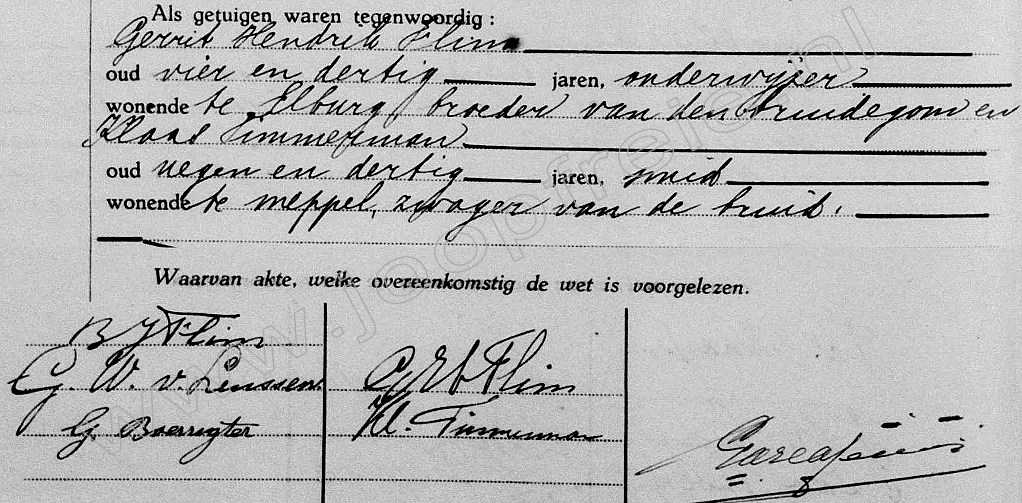 Als getuigen waren tegenwoordig:
Gerrit Hendrik Flim
oud vier en dertig jaren, onderwijzer
wonende te Elburg, broeder van den bruidegom en
Klaas Timmerman
oud negen en dertig jaren, smid
wonende te meppel, zwager van de bruid.
Waarvan akte, welke overeenkomstig de wet is voorgelezen.
B J Flim
G. W. v. Lenssen
G. Boerrigter
G H Flim
Kl. Timmerman
www.joopfrejo.nl